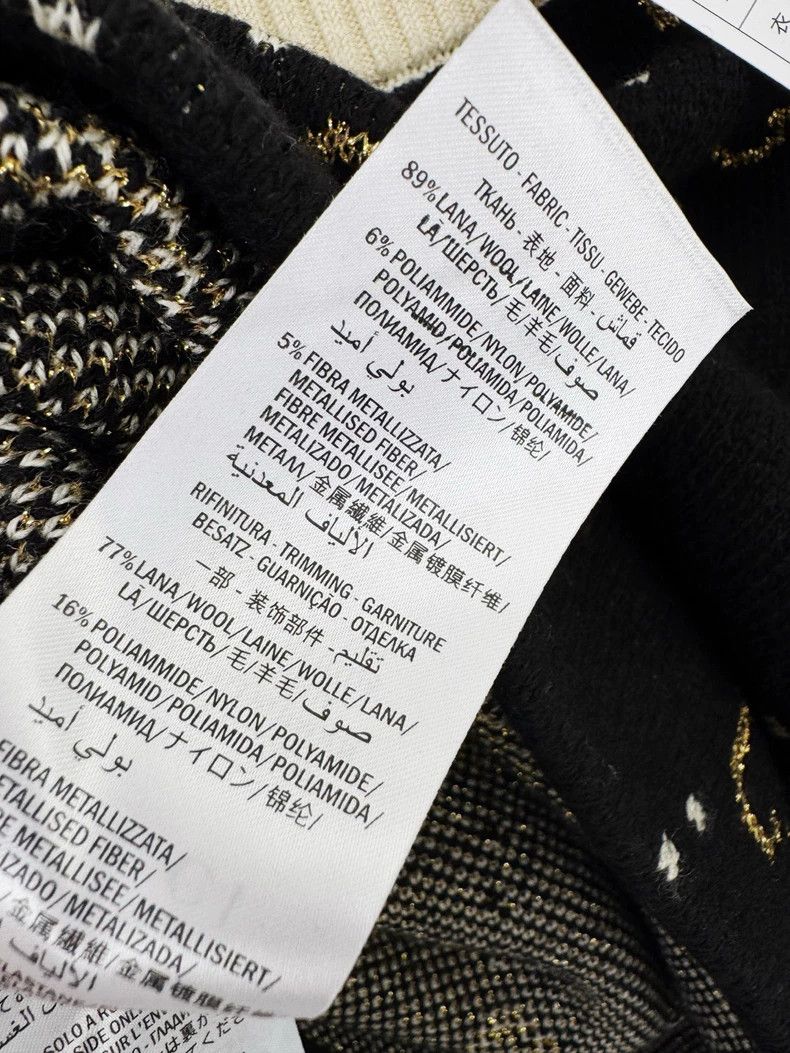 TESSUTO - FABRIC - TISSU - GEWEBE - TECIDO
ТКАНЬ - 表地 - 面料 - قماش
89% LANA/WOOL/LAINE/WOLLE/LANA/
LÃ/ШЕРСТЬ/毛/羊毛/صوف
6% POLIAMMIDE/NYLON/POLYAMIDE/
POLYAMID/POLIAMIDA/POLIAMIDA/
ПОЛИАМИД/ナイロン/锦纶/
بولي أميد
5% FIBRA METALLIZZATA/
METALLISED FIBER/
FIBRE METALLISEE/METALLISIERT/
METALIZADO/METALIZADA/
МЕТАЛЛ/金属繊維/金属镀膜纤维/
الألياف المعدنية
RIFINITURA - TRIMMING - GARNITURE
BESATZ - GUARNIÇÃO - ОТДЕЛКА
一部 - 装饰部件 - تقليم
77% LANA/WOOL/LAINE/WOLLE/LANA/
LÃ/ШЕРСТЬ/毛/羊毛/صوف
16% POLIAMMIDE/NYLON/POLYAMIDE/
POLYAMID/POLIAMIDA/POLIAMIDA/
ПОЛИАМИД/ナイロン/锦纶/
بولي أميد
FIBRA METALLIZZATA/
METALLISED FIBER/
METALLISEE/METALLISIERT/
/METALIZADA/
/金属繊維/金属镀膜纤维
الألياف
SOLO A
SIDE ONL
UR L'EN
は裏か
てくださ
衣